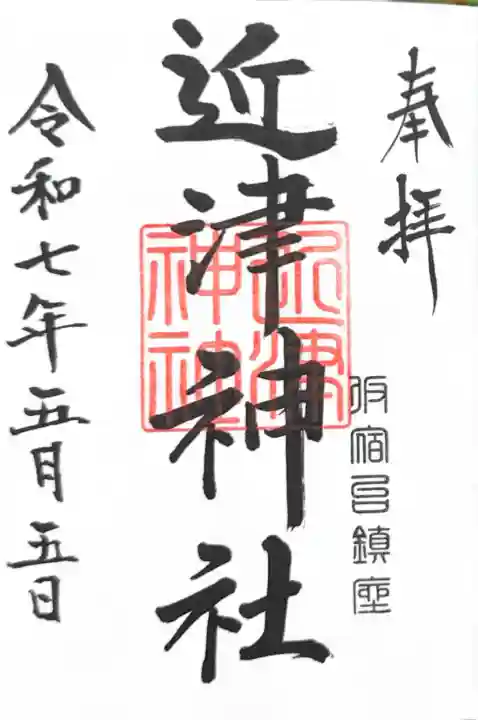 奉拝
坂宿邑鎮座
近津神社
近津
神社
令和七年五月五日